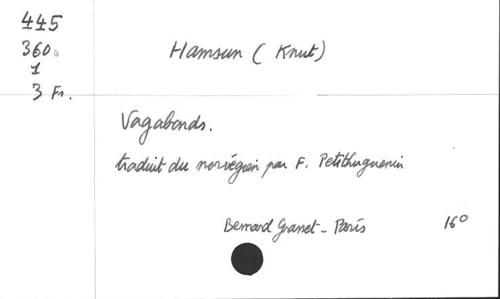 445
360.
1
3 Fr.
Hamsun ( Knut)
Vagabonds.
traduit du norvégien par F. Petithuguenin
Bernard Grasset - Paris 16°